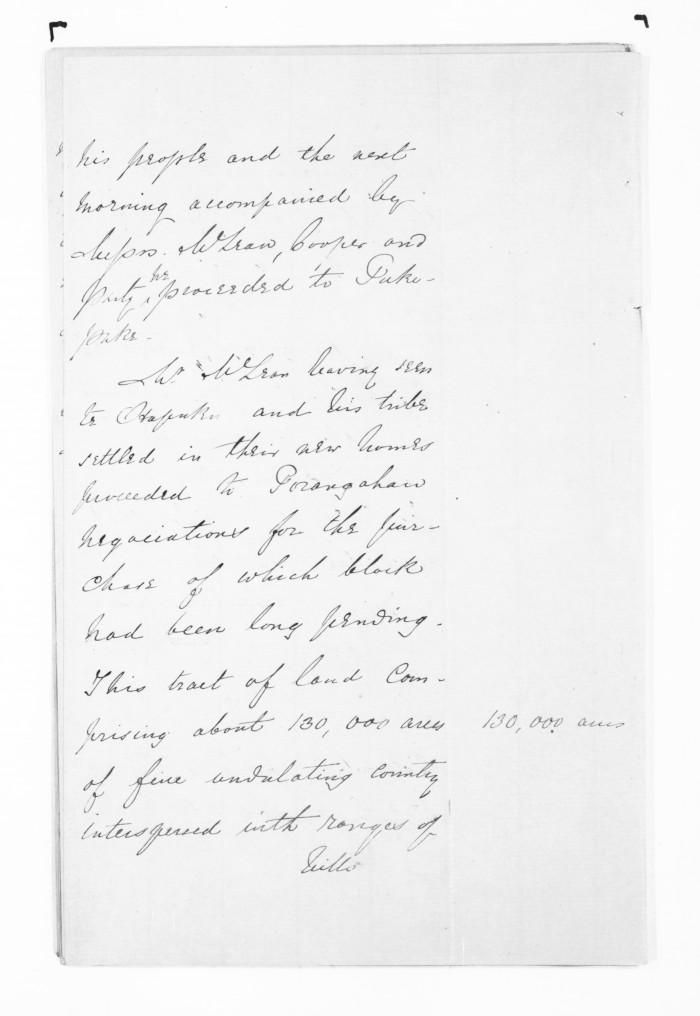 his people and the next
morning accompanied by
Messrs. McLean, Cooper and
party he proceeded to Puke-
puke.
Mr. McLean having seen
Te Hapuku and his tribe
settled in their new homes
proceeded to Porangahau
negociations for the pur-
chase of which block
had been long pending.
This tract of land com-
prising about 130,000 acres
130,000 acres
of fine undulating country
interspersed with ranges of
hills